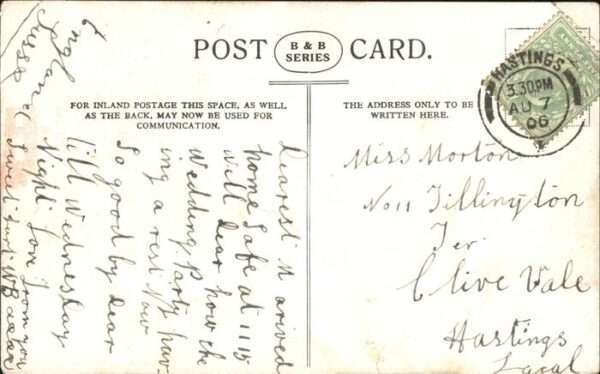 POST B & B SERIES CARD.
FOR INLAND POSTAGE THIS SPACE, AS WELL
AS THE BACK, MAY NOW BE USED FOR
COMMUNICATION.
THE ADDRESS ONLY TO BE
WRITTEN HERE.
HASTINGS
3.30PM
AU 7
06
Dearest M arived
home safe at 11 15
will dear how the
Wedding Party hav-
ing a rest Now
So good by dear
till Wednesday
Night Love from you
Sweet heart WB xxxx
England
Sussex
Miss Morton
No 11 Tillington
Ter
Clive Vale
Hastings
Local